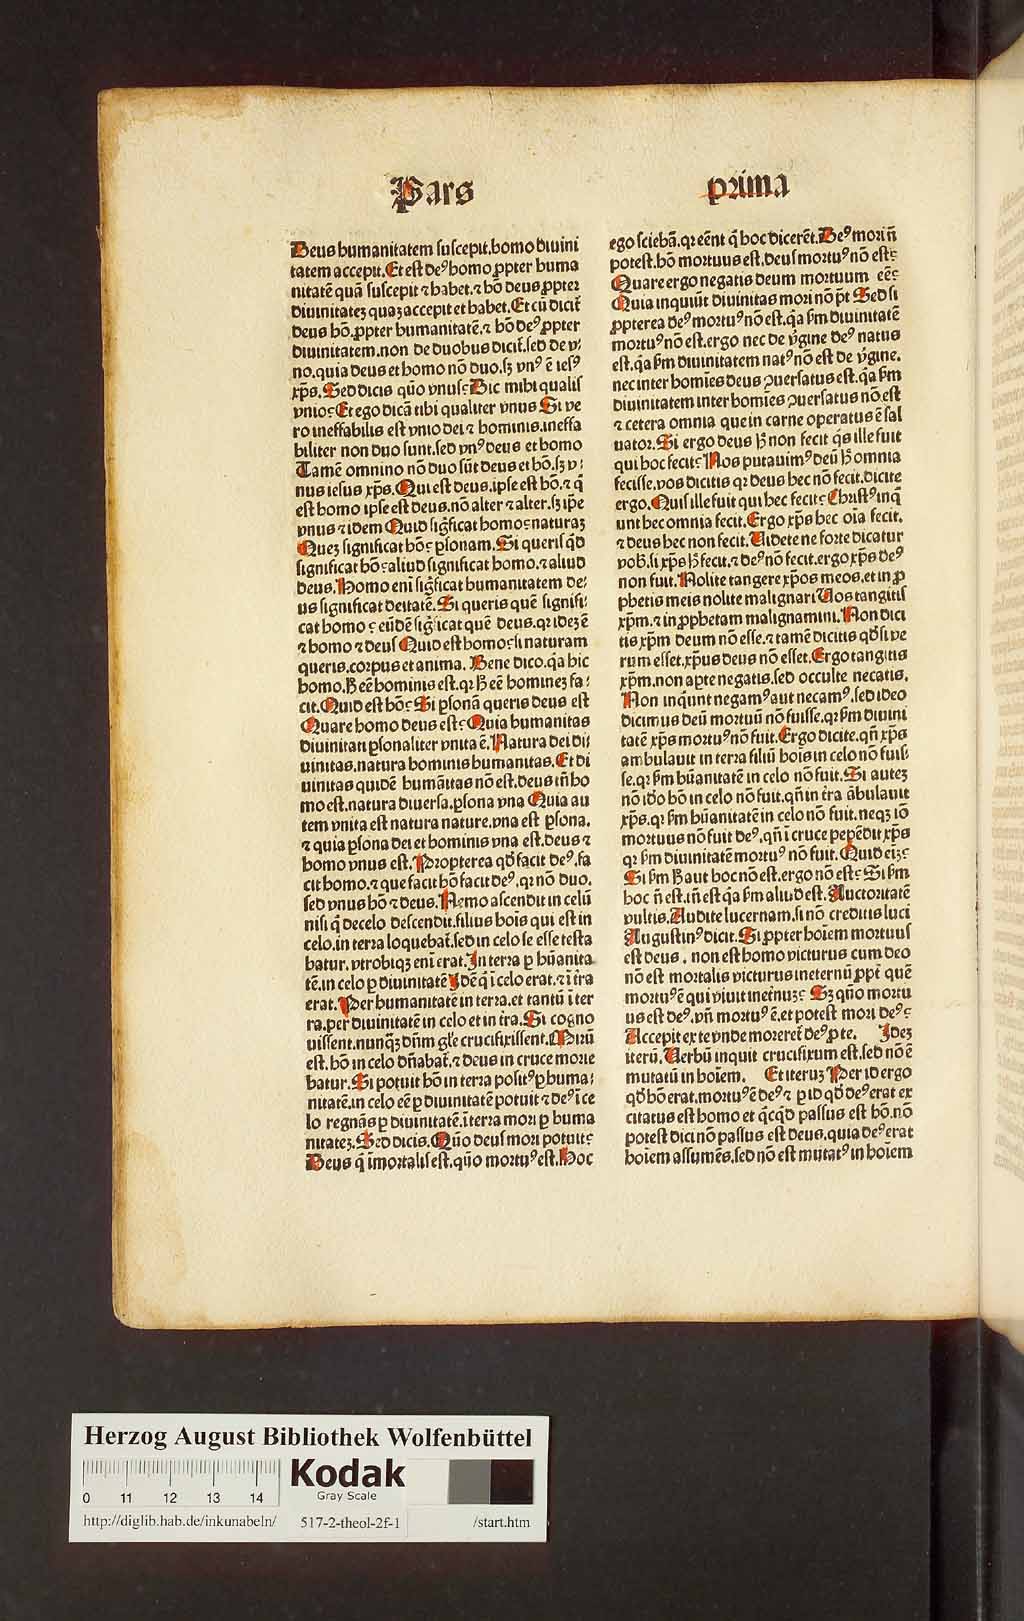 Pars prima
Deus humanitatem suscepit. homo diuini
tatem accepit. Et est deꝰ homo ꝓpter huma
nitatē quā suscepit ⁊ habet. ⁊ hō deus ꝓpter
diuinitateꝫ quaꝫ accepit et habet. Et cū dicit̄
deus hō. ꝓpter humanitatē. ⁊ hō deꝰ ꝓpter
diuinitatem. non de duobus dicit̄. sed de v⸗
no. quia deus et homo nō duo. sꝫ vnꝰ ē iesꝰ
xp̄s. Sed dicis quō vnus? Dic mihi qualis
vnio? Et ego dicā tibi qualiter vnus Si ve
ro ineffabilis est vnio dei ⁊ hominis. ineffa
biliter non duo sunt. sed vnꝰ deus et homo
Tamē omnino nō duo sūt deus et hō. sꝫ v⸗
nus iesus xp̄s. Qui est deus. ipse est hō. ⁊ q̄
est homo ipse est deus. nō alter ⁊ alter. sꝫ ip̄e
vnus ⁊ idem Quid sig̃ficat homo? naturaꝫ
Queꝫ significat hō? ꝑsonam. Si queris qd̄
significat hō? aliud significat homo. ⁊ aliud
deus. Homo eni sig̃ficat humanitatem de⸗
us significat deitatē. Si queris quē signifi⸗
cat homo? eūdē sig̃ficat quē deus. qꝛ idē ē
⁊ homo ⁊ deus Quid est homo? si naturam
queris. corpus et anima. Bene dico. q̄a hic
homo. ꝧ eē hominis est. qꝛ ꝧ eē homineꝫ fa⸗
cit. Quid est hō? Si ꝑsonā queris deus est
Quare homo deus est? Quia humanitas
diuinitati ꝑsonaliter vnita ē. Natura dei di⸗
uinitas. natura hominis humanitas. Et di
uinitas quidē humāitas nō est. deus tn̄ ho
mo est. natura diuersa. ꝑsona vna Quia au
tem vnita est natura nature. vna est ꝑsona.
⁊ quia ꝑsona dei et hominis vna est. deus ⁊
homo vnus est. Propterea qd̄ facit deꝰ. fa
cit homo. ⁊ que facit hō facit deꝰ. qꝛ nō duo.
sed vnus hō ⁊ deus. Nemo ascendit in celū
nisi q̄ de celo descendit. filius hois qui est in
celo. in terra loquebat̄. sed in celo se esse testa
batur. vtrobiqꝫ eni erat. In terra ꝑ hūanita
tē. in celo ꝑ diuinitatē Idē q̄ ī celo erat. ⁊ ī tr̄a
erat. Per humanitatē in terra. et tantū ī ter
ra. per diuinitatē in celo et in tr̄a. Si cogno
uissent. nunqꝫ dn̄m gl̄e crucifixissent. Mirū
est. hō in celo dn̄abat̄. ⁊ deus in cruce morie
batur. Si potuit hō in terra positꝰ ꝑ huma⸗
nitatē. in celo eē ꝑ diuinitatē potuit ⁊ deꝰ ī ce
lo regnās ꝑ diuinitatē. ī terra mori ꝑ huma
nitateꝫ. Sed dicis. Quō deus mori potuit?
Deus q̄ īmortalis est. quō mortuꝰ est. Hoc
ego sciebā. qꝛ eēnt q̄ hoc dicerēt. Deꝰ mori n̄
potest. hō mortuus est. deus mortuꝰ nō est?
Quare ergo negatis deum mortuum eē?
Quia inquiūt diuinitas mori nō pt̄ Sed si
ꝓpterea deꝰ mortuꝰ nō est. q̄a ẜm diuinitatē
mortuꝰ nō est. ergo nec de v̄gine deꝰ natus
est. q̄a ẜm diuinitatem natꝰ nō est de v̄gine.
nec inter homīes deus ↄuersatus est. q̄a ẜm
diuinitatem inter homīes ↄuersatus nō est
⁊ cetera omnia que in carne operatus ē sal
uator. Si ergo deus ꝧ non fecit q̄s ille fuit
qui hoc fecit? Nos putauimꝰ deū ꝧ omnia
fecisse. vos dicitis qꝛ deus hec nō fecit. dicite
ergo. Quis ille fuit qui hec fecit? Christꝰ inq̄
unt hec omnia fecit. Ergo xp̄s hec oīa fecit.
⁊ deus hec non fecit. Uidete ne forte dicatur
vob̄. si xp̄s ꝧ fecit. ⁊ deꝰ nō fecit. ergo xp̄s deꝰ
non fuit. Nolite tangere xp̄os meos. et in ꝓ
phetis meis nolite malignari Uos tangitis
xp̄m. ⁊ in ꝓphetam malignamini. Non dici
tis xp̄m deum nō esse. ⁊ tamē dicitis qd̄ si ve
rum esset. xp̄us deus nō esset. Ergo tangitis
xp̄m. non aꝑte negatis. sed occulte necatis.
Non inq̄unt negamꝰ aut necamꝰ. sed ideo
dicimus deū mortuū nō fuisse. qꝛ ẜm diuini
tatē xp̄s mortuꝰ nō fuit. Ergo dicite. qn̄ xp̄s
ambulauit in terra filiū hois in celo nō fuis⸗
se. qꝛ ẜm hūanitatē in celo nō fuit. Si auteꝫ
nō id̄o hō in celo nō fuit. qn̄ in tr̄a ābulauit
xp̄s. qꝛ ẜm hūanitatē in celo nō fuit. neqꝫ iō
mortuus nō fuit deꝰ. qn̄ ī cruce pepēdit xp̄s
qꝛ ẜm diuinitatē mortuꝰ nō fuit. Quid ei?
Si ẜm ꝧ aut hoc nō est. ergo nō est? Si ẜm
hoc n̄ est. in̄ est q̄a ẜm aliud est. Auctoritatē
vultis. Audite lucernam. si nō creditis luci
Augustinꝰ dicit. Si ꝓpter hoīem mortuus
est deus. non est homo victurus cum deo
nō est mortalis victurus in eternū ꝓpt̄ quē
mortuꝰ ē qui viuit in et̄nuꝫ? Sꝫ quō mortu
us est deꝰ. vn̄ mortuꝰ ē. et potest mori deꝰ?
Accepit ex te vnde moreret̄ deꝰ ꝑ te. Ideꝫ
iterū. Uerbū inquit crucifixum est. sed nō ē
mutatū in hoīem. Et iteruꝫ Per id ergo
qd̄ hō erat. mortuꝰ ē deꝰ ⁊ ꝑ id qd̄ deꝰ erat ex
citatus est homo et q̄cqd̄ passus est hō. nō
potest dici nō passus est deus. quia deꝰ erat
hoīem assumēs. sed nō est mutatꝰ in hoīem
Herzog August Bibliothek Wolfenbüttel
0 11 12 13 14
Kodak
Gray Scale
http://diglib.hab.de/inkunabeln/ 517-2-theol-2f-1 /start.htm